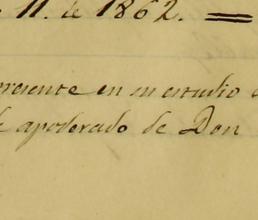 11. de 1862.
presente en su estudio
apoderado de Don